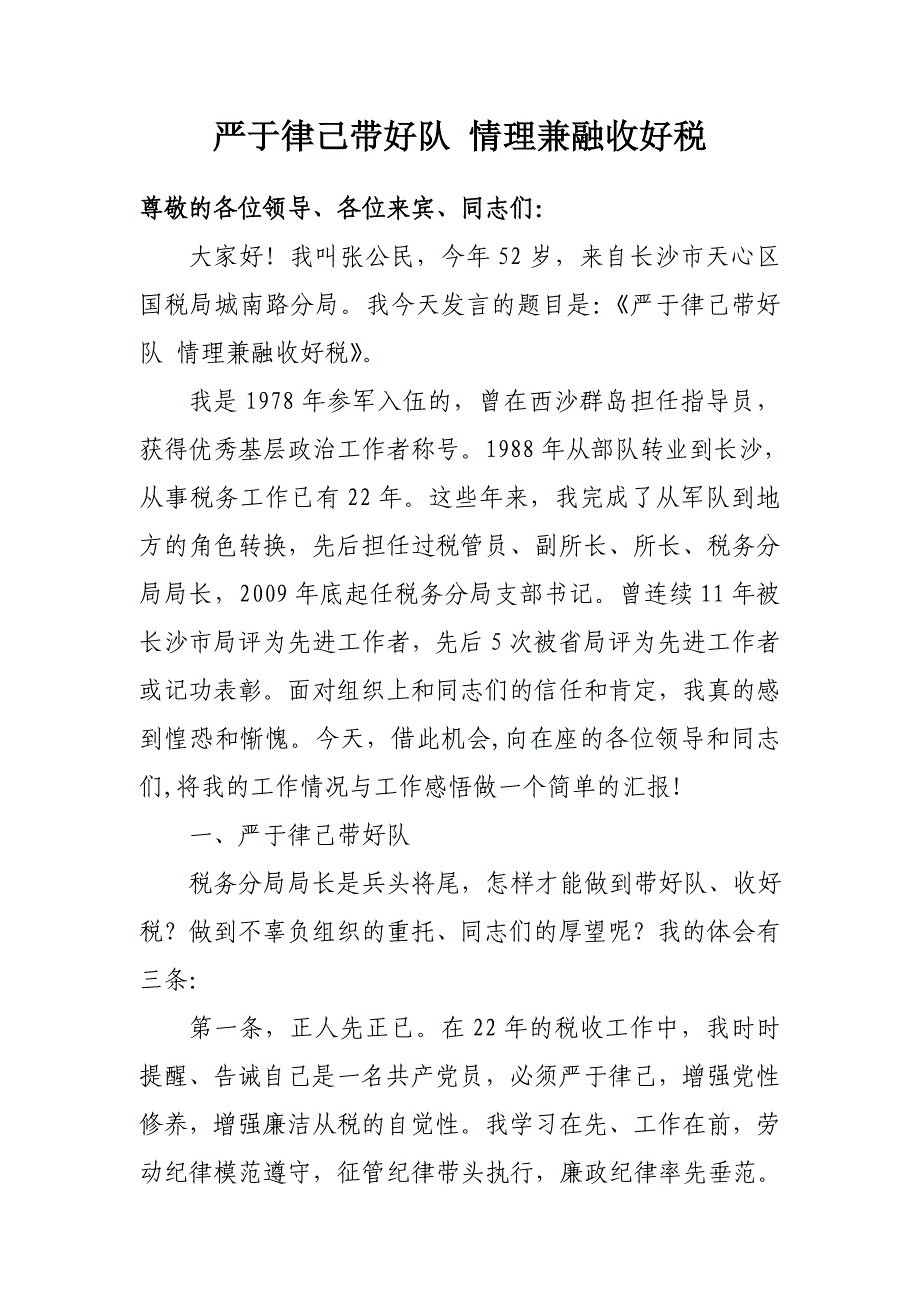 严于律己带好队 情理兼融收好税
尊敬的各位领导、各位来宾、同志们：
大家好！我叫张公民，今年 52 岁，来自长沙市天心区
国税局城南路分局。我今天发言的题目是：《严于律己带好
队 情理兼融收好税》。
我是 1978 年参军入伍的，曾在西沙群岛担任指导员，
获得优秀基层政治工作者称号。1988 年从部队转业到长沙，
从事税务工作已有 22 年。这些年来，我完成了从军队到地
方的角色转换，先后担任过税管员、副所长、所长、税务分
局局长，2009 年底起任税务分局支部书记。曾连续 11 年被
长沙市局评为先进工作者，先后 5 次被省局评为先进工作者
或记功表彰。面对组织上和同志们的信任和肯定，我真的感
到惶恐和惭愧。今天，借此机会,向在座的各位领导和同志
们,将我的工作情况与工作感悟做一个简单的汇报！
一、严于律己带好队
税务分局局长是兵头将尾，怎样才能做到带好队、收好
税？做到不辜负组织的重托、同志们的厚望呢？我的体会有
三条：
第一条，正人先正已。在 22 年的税收工作中，我时时
提醒、告诫自己是一名共产党员，必须严于律己，增强党性
修养，增强廉洁从税的自觉性。我学习在先、工作在前，劳
动纪律模范遵守，征管纪律带头执行，廉政纪律率先垂范。